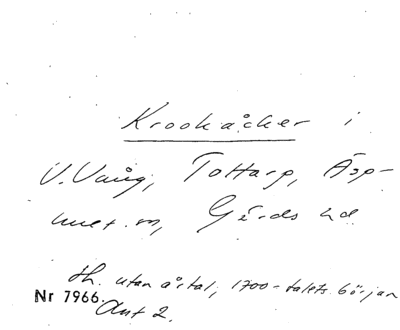 Krookåcker i
V. Vång, Tottarp, Äsp-
huset m, Gärds hd
Hs. utan årtal, 1700-talets början
Nr 7966.
Ant 2.